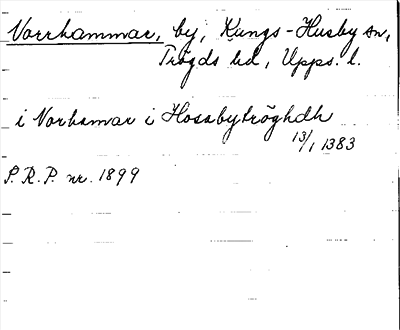 Norrhammar, by, Kungs-Husby sn,
Trögds hd, Upps. l.
i Norhamar i Hosabytröghdh
13/1 1383
S.R.P. nr. 1899